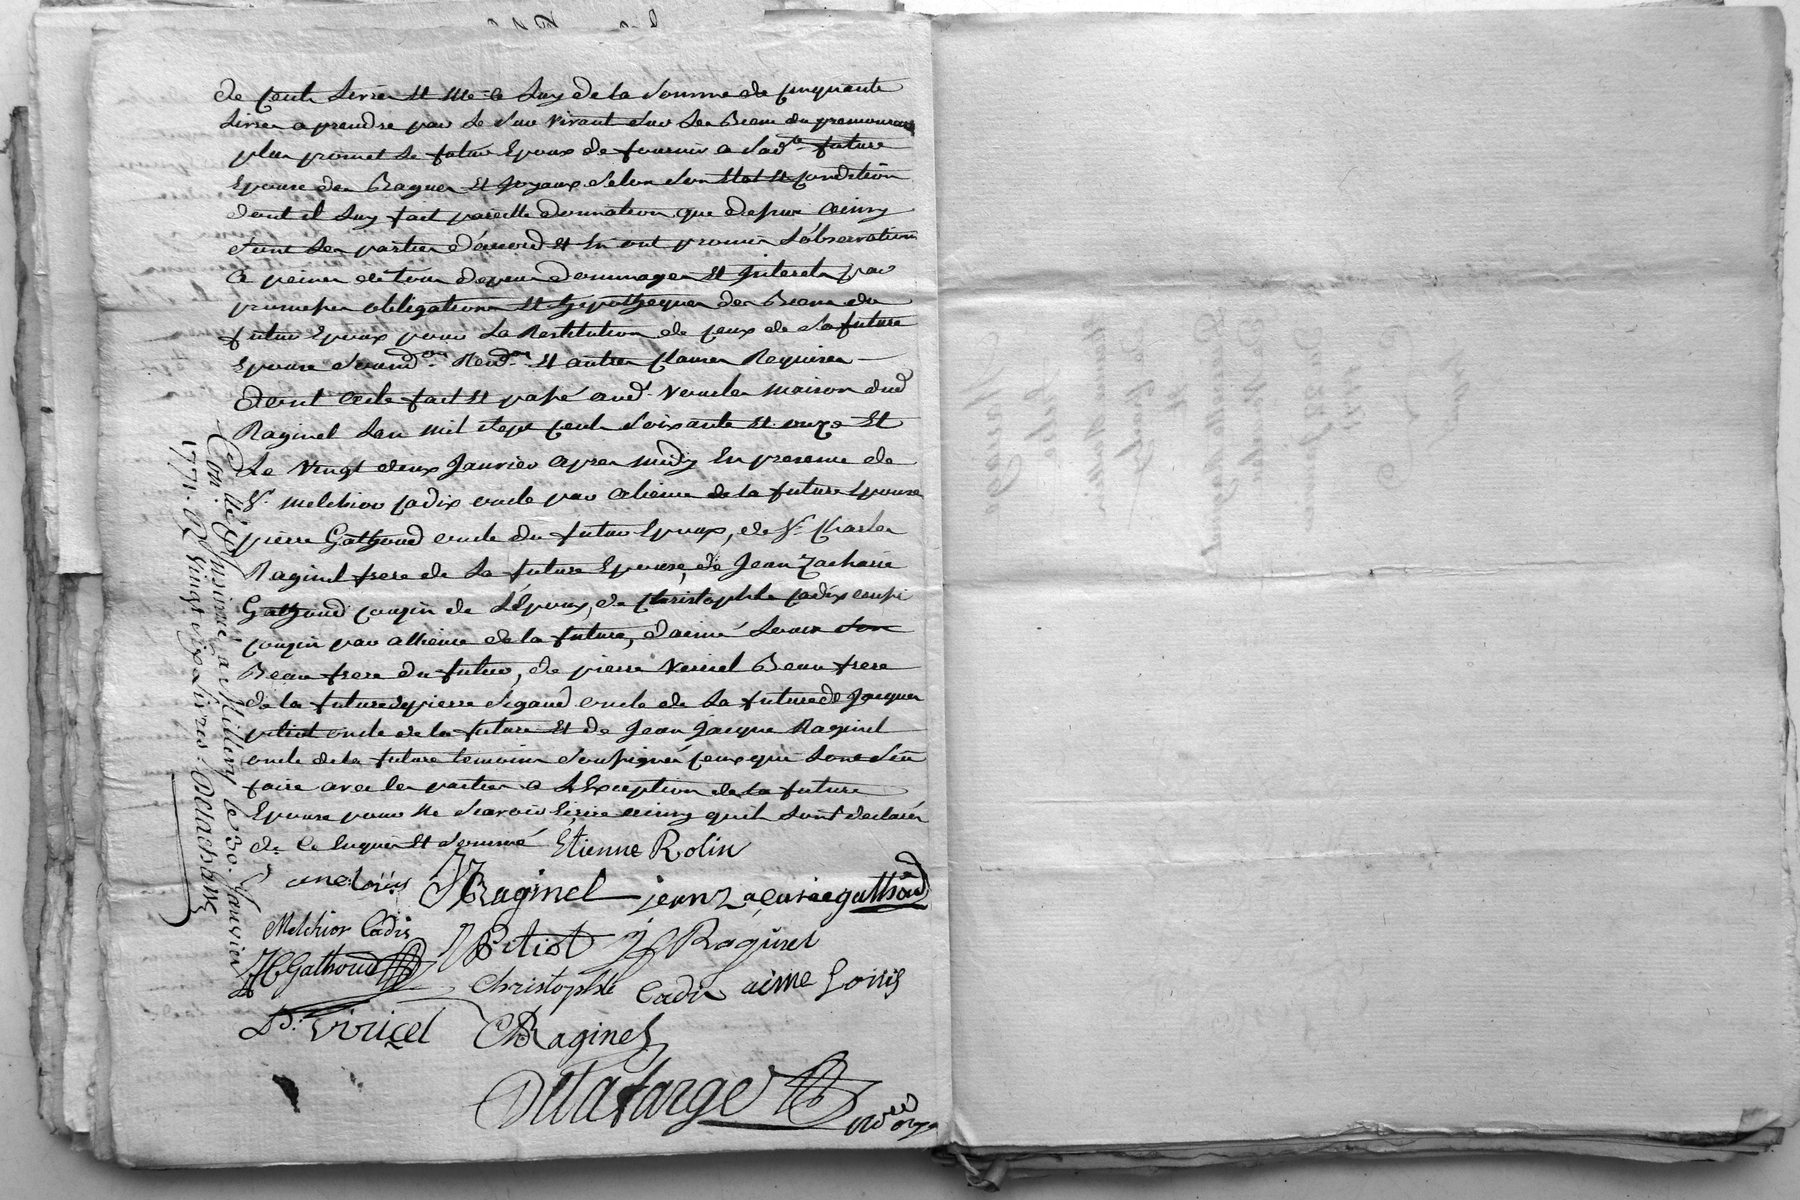 de Cent Livres Et Elle a Luy de la Somme de Cinquante
Livres a prendre par le Survivant Sur les Biens du premourant
plus promet le futur Epoux de fournir a Sadte future
Epouse des Bagues Et Joyaux Selon Son Etat Et Condition
dont il Luy fait pareille donnation que depuis ainsy
Sont les parties d'accord Et En ont promis L'observation
a peines de tous depens dommages Et Interets par
promesses obligations Et hipotheques des Biens du
futur Epoux pour La Restitution de Ceux de La future
Epouse Et autres Clauses Requises
dont acte fait Et passé aud. maison dud
Raginel L'an mil Sept Cent Soixante Et onze Et
Le vingt deux Janvier apres midy En presence de
Sr. Melchior Cadix oncle par alience de la future Epouse
pierre Gathoud oncle du futur Epoux, de Sr. Charles
Raginel frere de La future Epouse, de Jean Zacharie
Gathoud Cousin de L'Epoux, de Christophle Cadix aussi
Cousin par allience de la future, d'aimé Louis Son
Beau frere du futur, de pierre Vericel Beau frere
de la future de pierre Segaud oncle de La future de Jacques
pitiot oncle de la future Et de Jean Jacque Raginel
oncle de la future temoins Soussignés Ceux qui Lont Sçu
faire avec les parties a L'Exception de la future
Epouse pour ne Scavoir Ecrire ainsy quils Lont declarés
de Ce Enquis Et Sommé Etienne Rolin
JRaginel jean zacarie gathoud
Melchior Cadis Pitiot JJ Raginel
Gathoud Christophle Cadis aime Louis
P. Viricel CRaginel
Delafarge
Con. llé & insinué a St. le 30. Janvier
1771. R. vingt six Livres. Delachaux